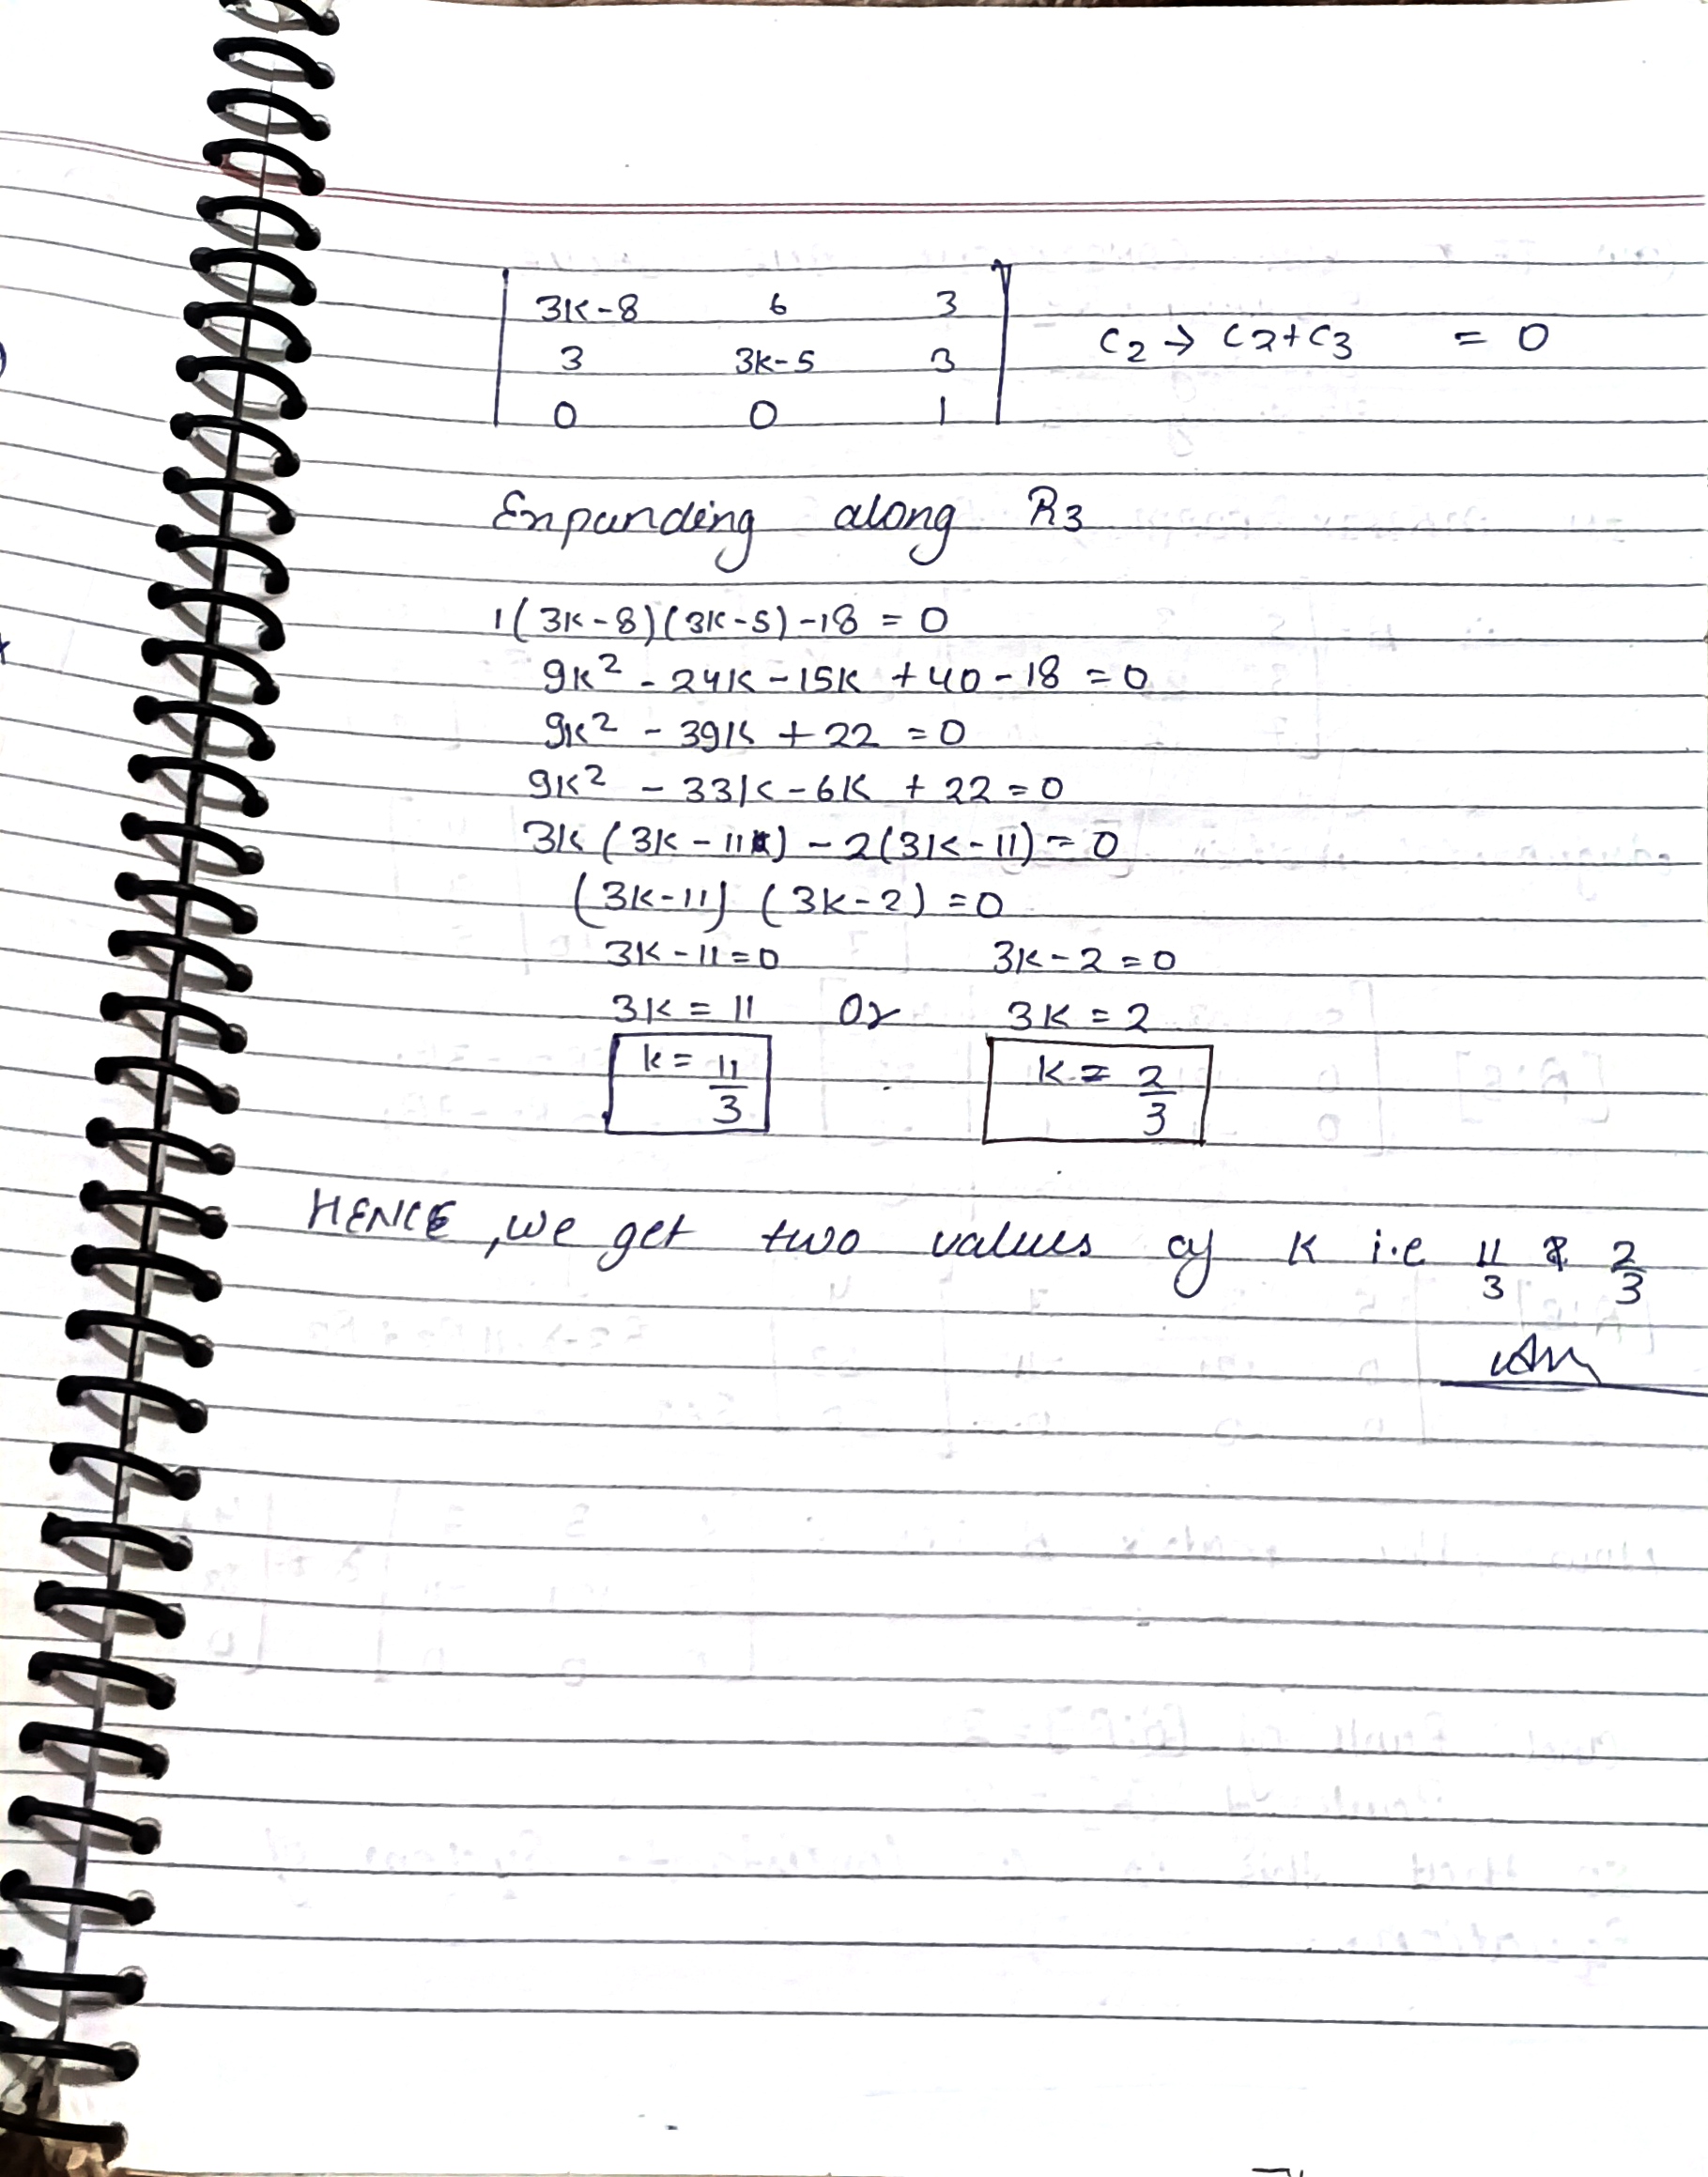 3K-8 6 3
3 3K-5 3 C2 → C2+C3 = 0
0 0 1
Expanding along R3
1(3K-8)(3K-5)-18 = 0
9K² - 24K - 15K + 40 - 18 = 0
9K² - 39K + 22 = 0
9K² - 33K - 6K + 22 = 0
3K (3K - 11) - 2(3K-11) = 0
(3K-11) (3K-2) = 0
3K - 11 = 0 3K - 2 = 0
3K = 11 Or 3K = 2
K = 11/3 K = 2/3
HENCE, we get two values of K i.e 11/3 & 2/3
Ans